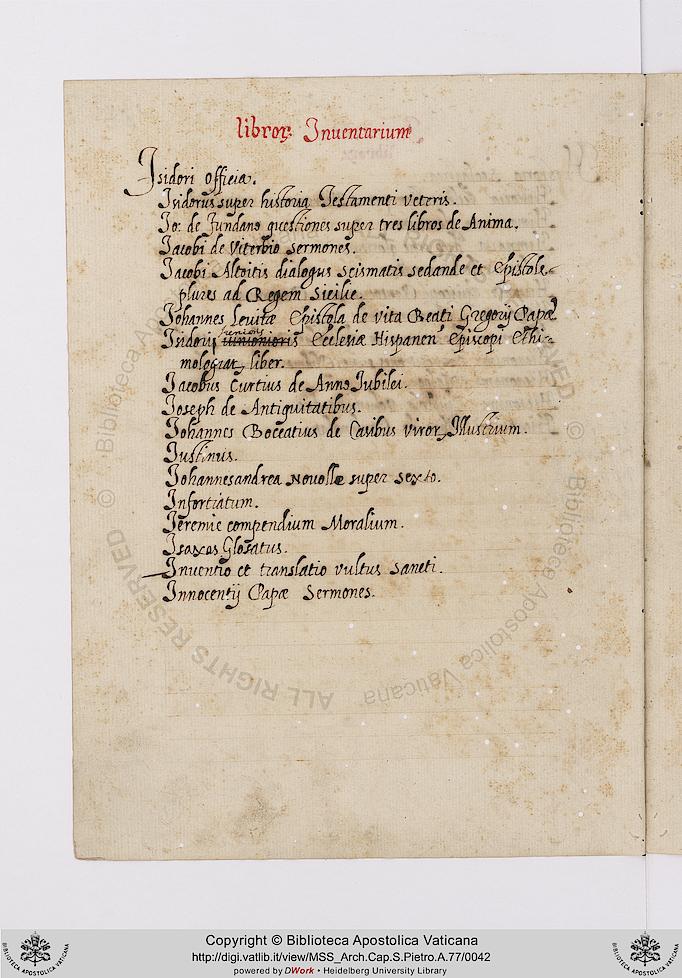 libroꝝ Inventarium
Isidori officia.
Isidorus super historia Testamenti veteris.
Io: de Jundano questiones super tres libros de Anima.
Jacobi de Viterbio sermones.
Jacobi Altoitis dialogus scismatis sedande et Epistole
plures ad Regem Sicilie.
Johannes Levitæ Epistola de vita Beati Gregorij Papæ
Isidori iunioris Ecclesiæ Hispanen Episcopi Ethi-
mologiaꝝ liber.
Jacobus Curtius de Anno Iubilei.
Joseph de Antiquitatibus.
Johannes Boccatius de Casibus viroꝝ Illustrium.
Iustinus.
Johannesandrea Novollæ super sexto.
Infortiatum.
Jeremie compendium Moralium.
Isaxes Glosatus.
Inventio et translatio vultus sancti.
Innocentij Papæ Sermones.
© Biblioteca Apostolica Vaticana
ALL RIGHTS RESERVED
Copyright © Biblioteca Apostolica Vaticana
http://digi.vatlib.it/view/MSS_Arch.Cap.S.Pietro.A.77/0042
powered by DWork • Heidelberg University Library
BIBLIOTECA APOSTOLICA VATICANA
BIBLIOTECA APOSTOLICA VATICANA